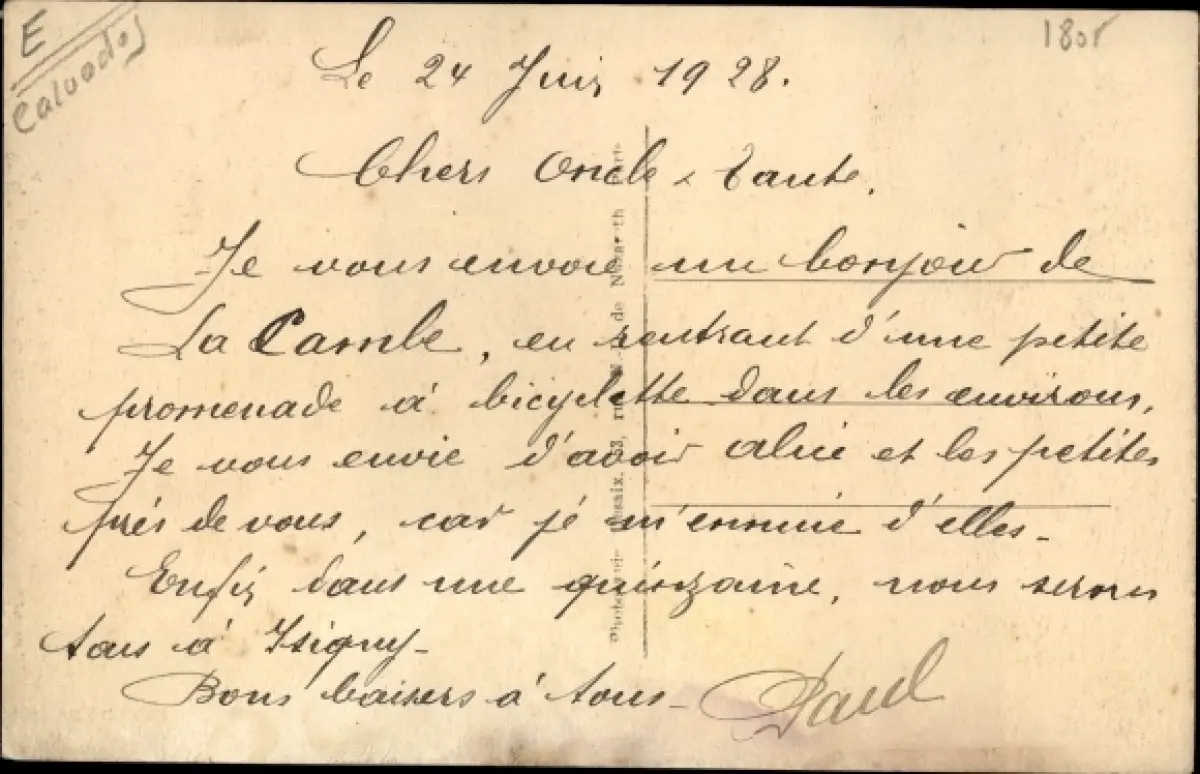 E
Calvados
1805
Le 24 Juin 1928.
Chers Oncle & Tante.
Je vous envoie un bonjour de
La Cambe, en rentrant d'une petite
promenade à bicyclette dans les environs,
Je vous envie d'avoir alice et les petites
près de vous, car je m'ennuie d'elles -
Enfin dans une quinzaine, nous serons
tous à Isigny -
Bons baisers à tous - Paul